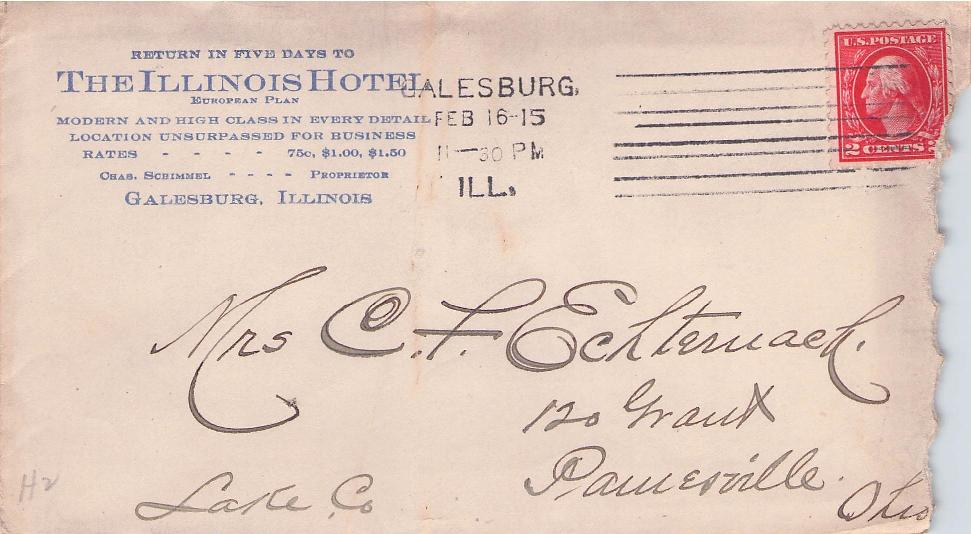 RETURN IN FIVE DAYS TO
THE ILLINOIS HOTEL
EUROPEAN PLAN
MODERN AND HIGH CLASS IN EVERY DETAIL
LOCATION UNSURPASSED FOR BUSINESS
RATES - - - - 75c, $1.00, $1.50
CHAS. SCHIMMEL - - - - PROPRIETOR
GALESBURG, ILLINOIS
GALESBURG,
FEB 16-15
11-30 PM
ILL.
U.S. POSTAGE
2 CENTS 2
Mrs C. F. Echternach.
120 Grant
Painesville.
Lake Co Ohio
H2